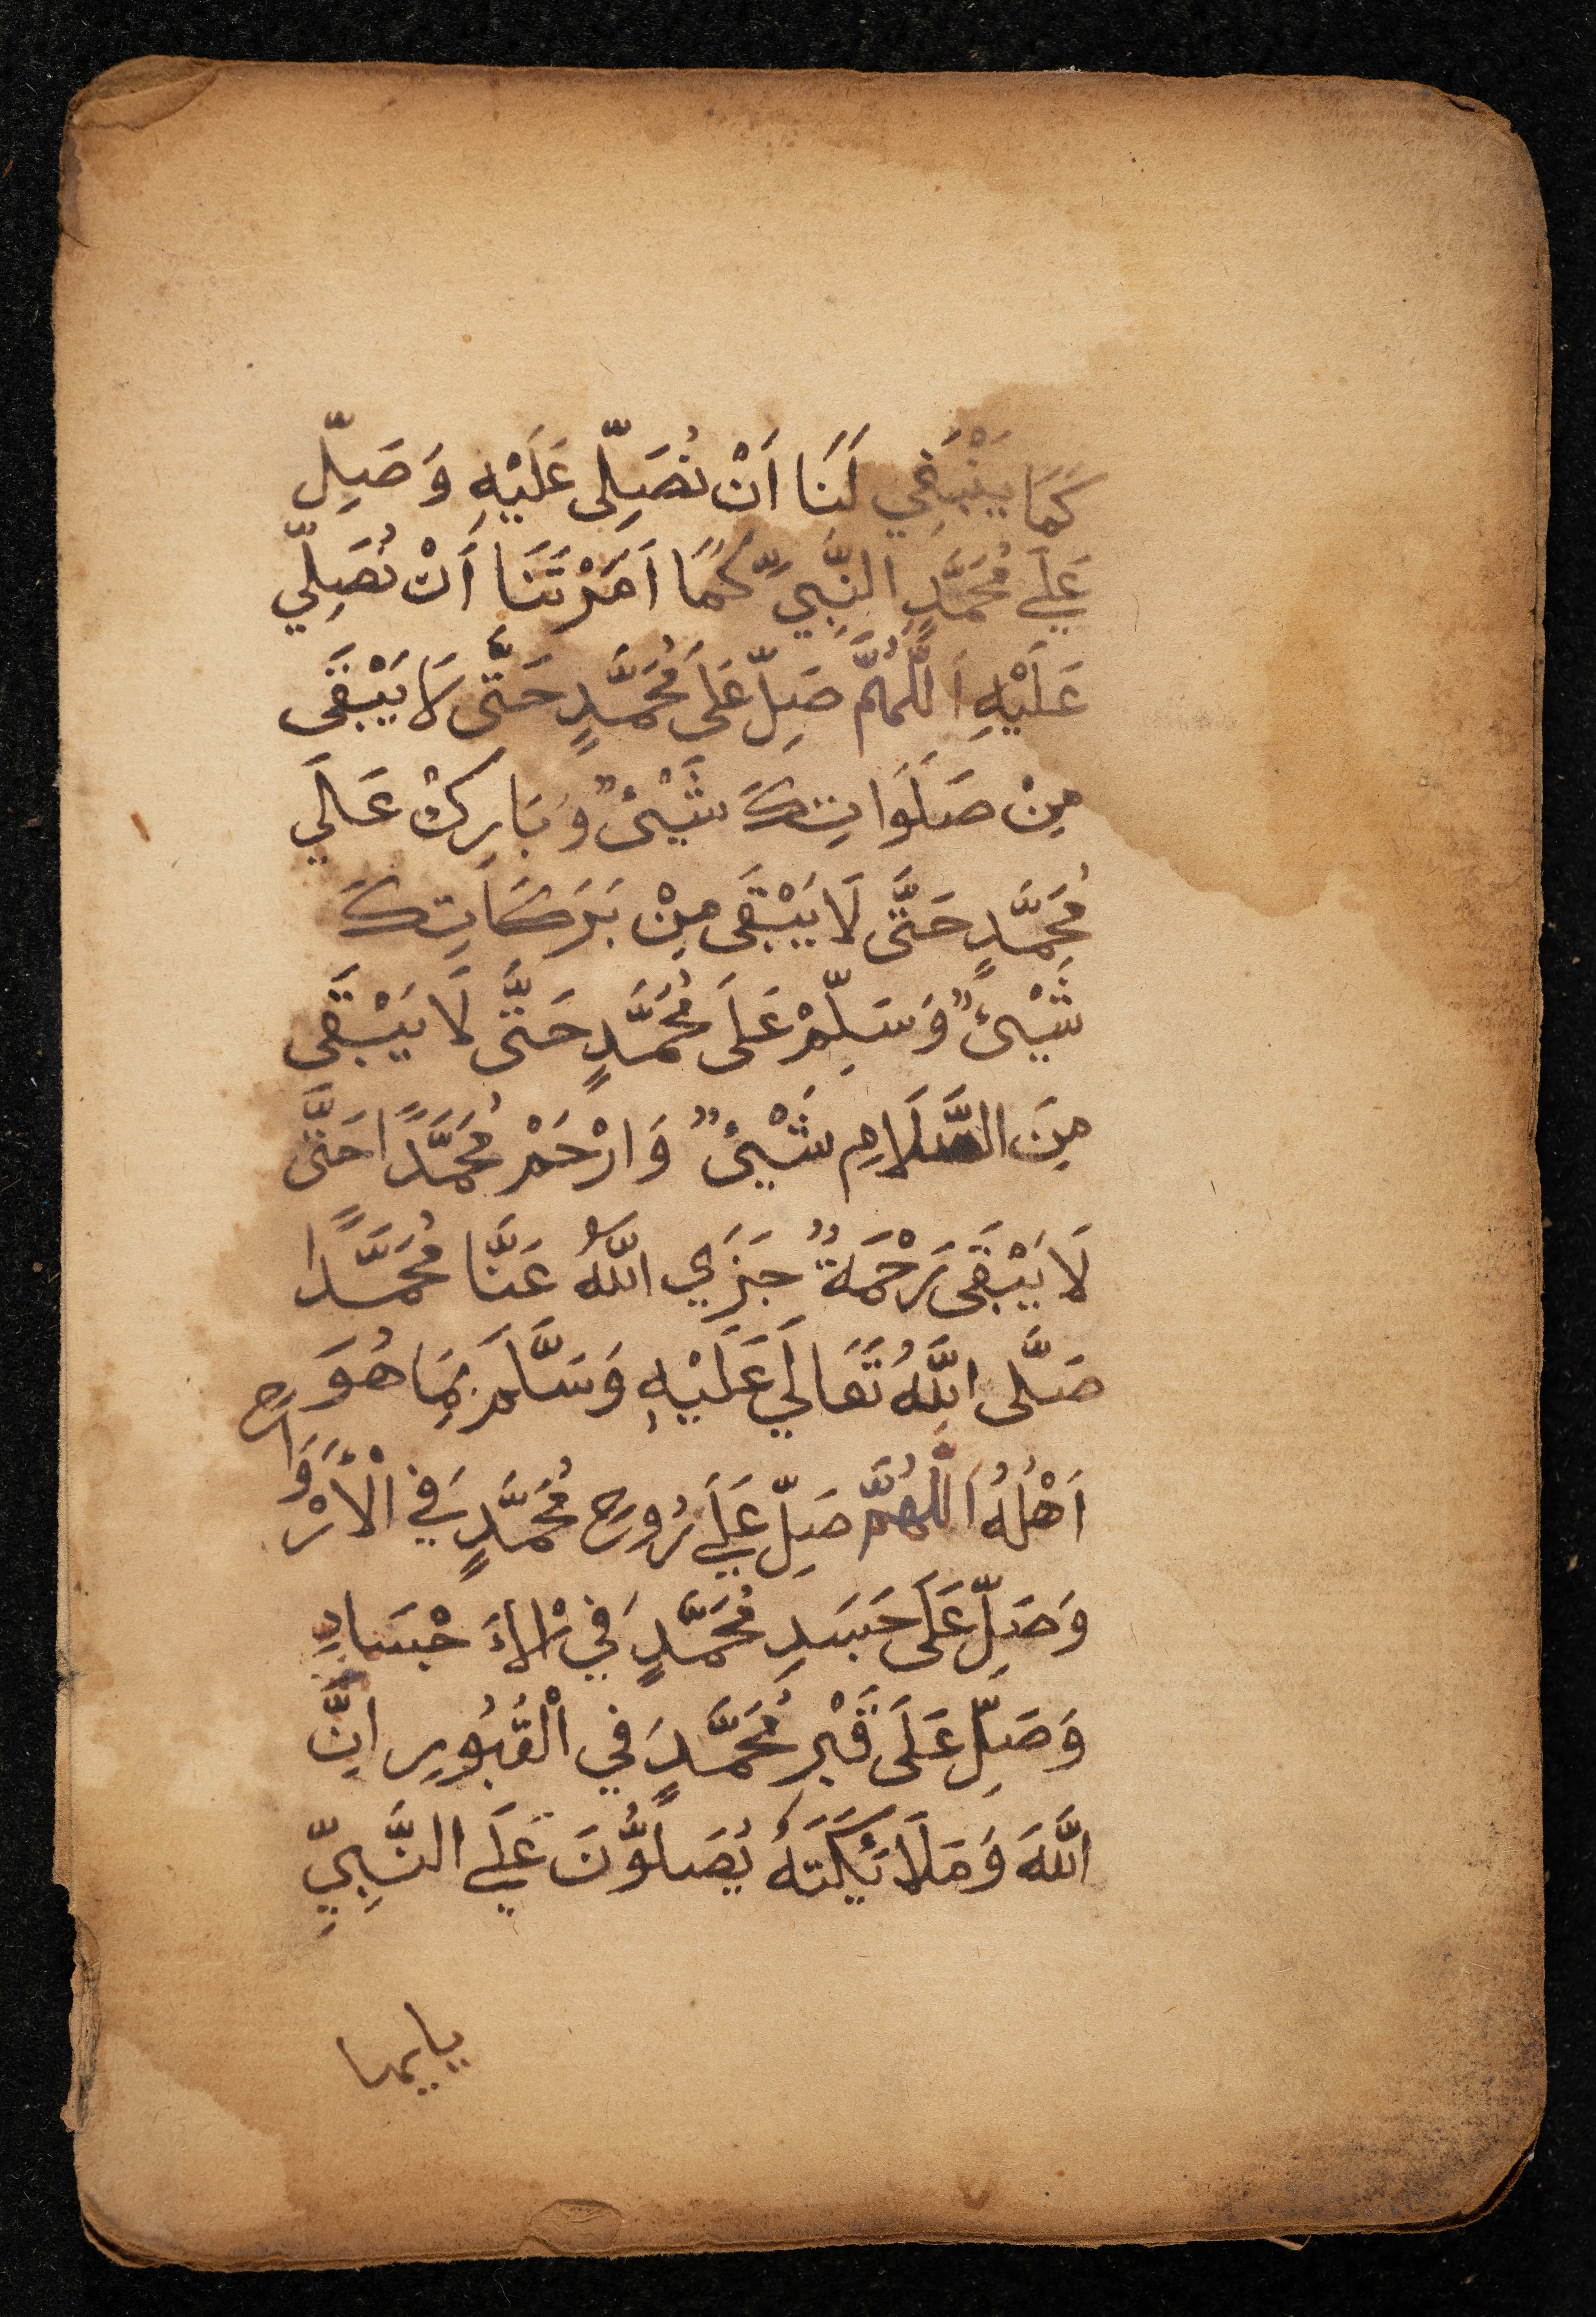 كَمَا يَنْبَغِي لَنَا اَنْ نُصَلِّى عَلَيْهِ وَصَلِّ
عَلَي مُحَمَّدٍ النَّبِيِّ كَمَا اَمَرْتَنَا اَنْ نُصَلِّي
عَلَيْهِ اَللّٰهُمَّ صَلِّ عَلَى مُحَمَّدٍ حَتَّى لَا يَبْقَى
مِنْ صَلَوَاتِكَ شَيْئٌ وَبَارِكْ عَالَي
مُحَمَّدٍ حَتَّى لَا يَبْقَى مِنْ بَرَكَاتِكَ
شَيْئٌ وَسَلِّمْ عَلَى مُحَمَّدٍ حَتَّى لَا يَبْقَى
مِنَ السَّلَامِ شَيْئٌ وَارْحَمْ مُحَمَّدًا حَتَّى
لَا يَبْقَى رَحْمَةٌ جَزَي اللّٰهُ عَنَّا مُحَمَّدًا
صَلَّى اللّٰهُ تَعَالَي عَلَيْهِ وَسَلَّمَ مَا هُوَ
اَهْلُهُ اَللّٰهُمَّ صَلِّ عَلَي رُوحِ مُحَمَّدٍ فِي الْاَرْوَاحِ
وَصَلِّ عَلَى جَسَدِ مُحَمَّدٍ فِي الْاَجْسَادِ
وَصَلِّ عَلَى قَبْرِ مُحَمَّدٍ فِي الْقُبُورِ اِنَّ
اللّٰهَ وَمَلَائِكَتَهُ يُصَلُّوْنَ عَلَي النَّبِيِّ
ياايها